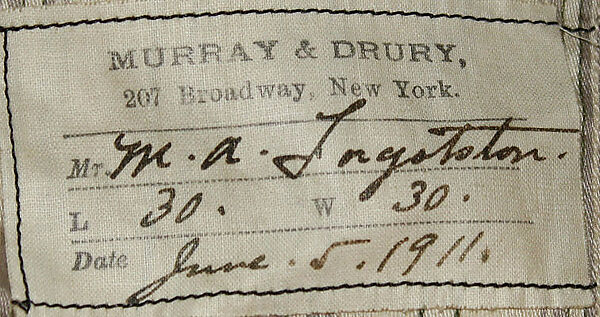 MURRAY & DRURY,
207 Broadway, New York.
Mr. M. A.
L 30. W 30.
Date June. 5. 1911.